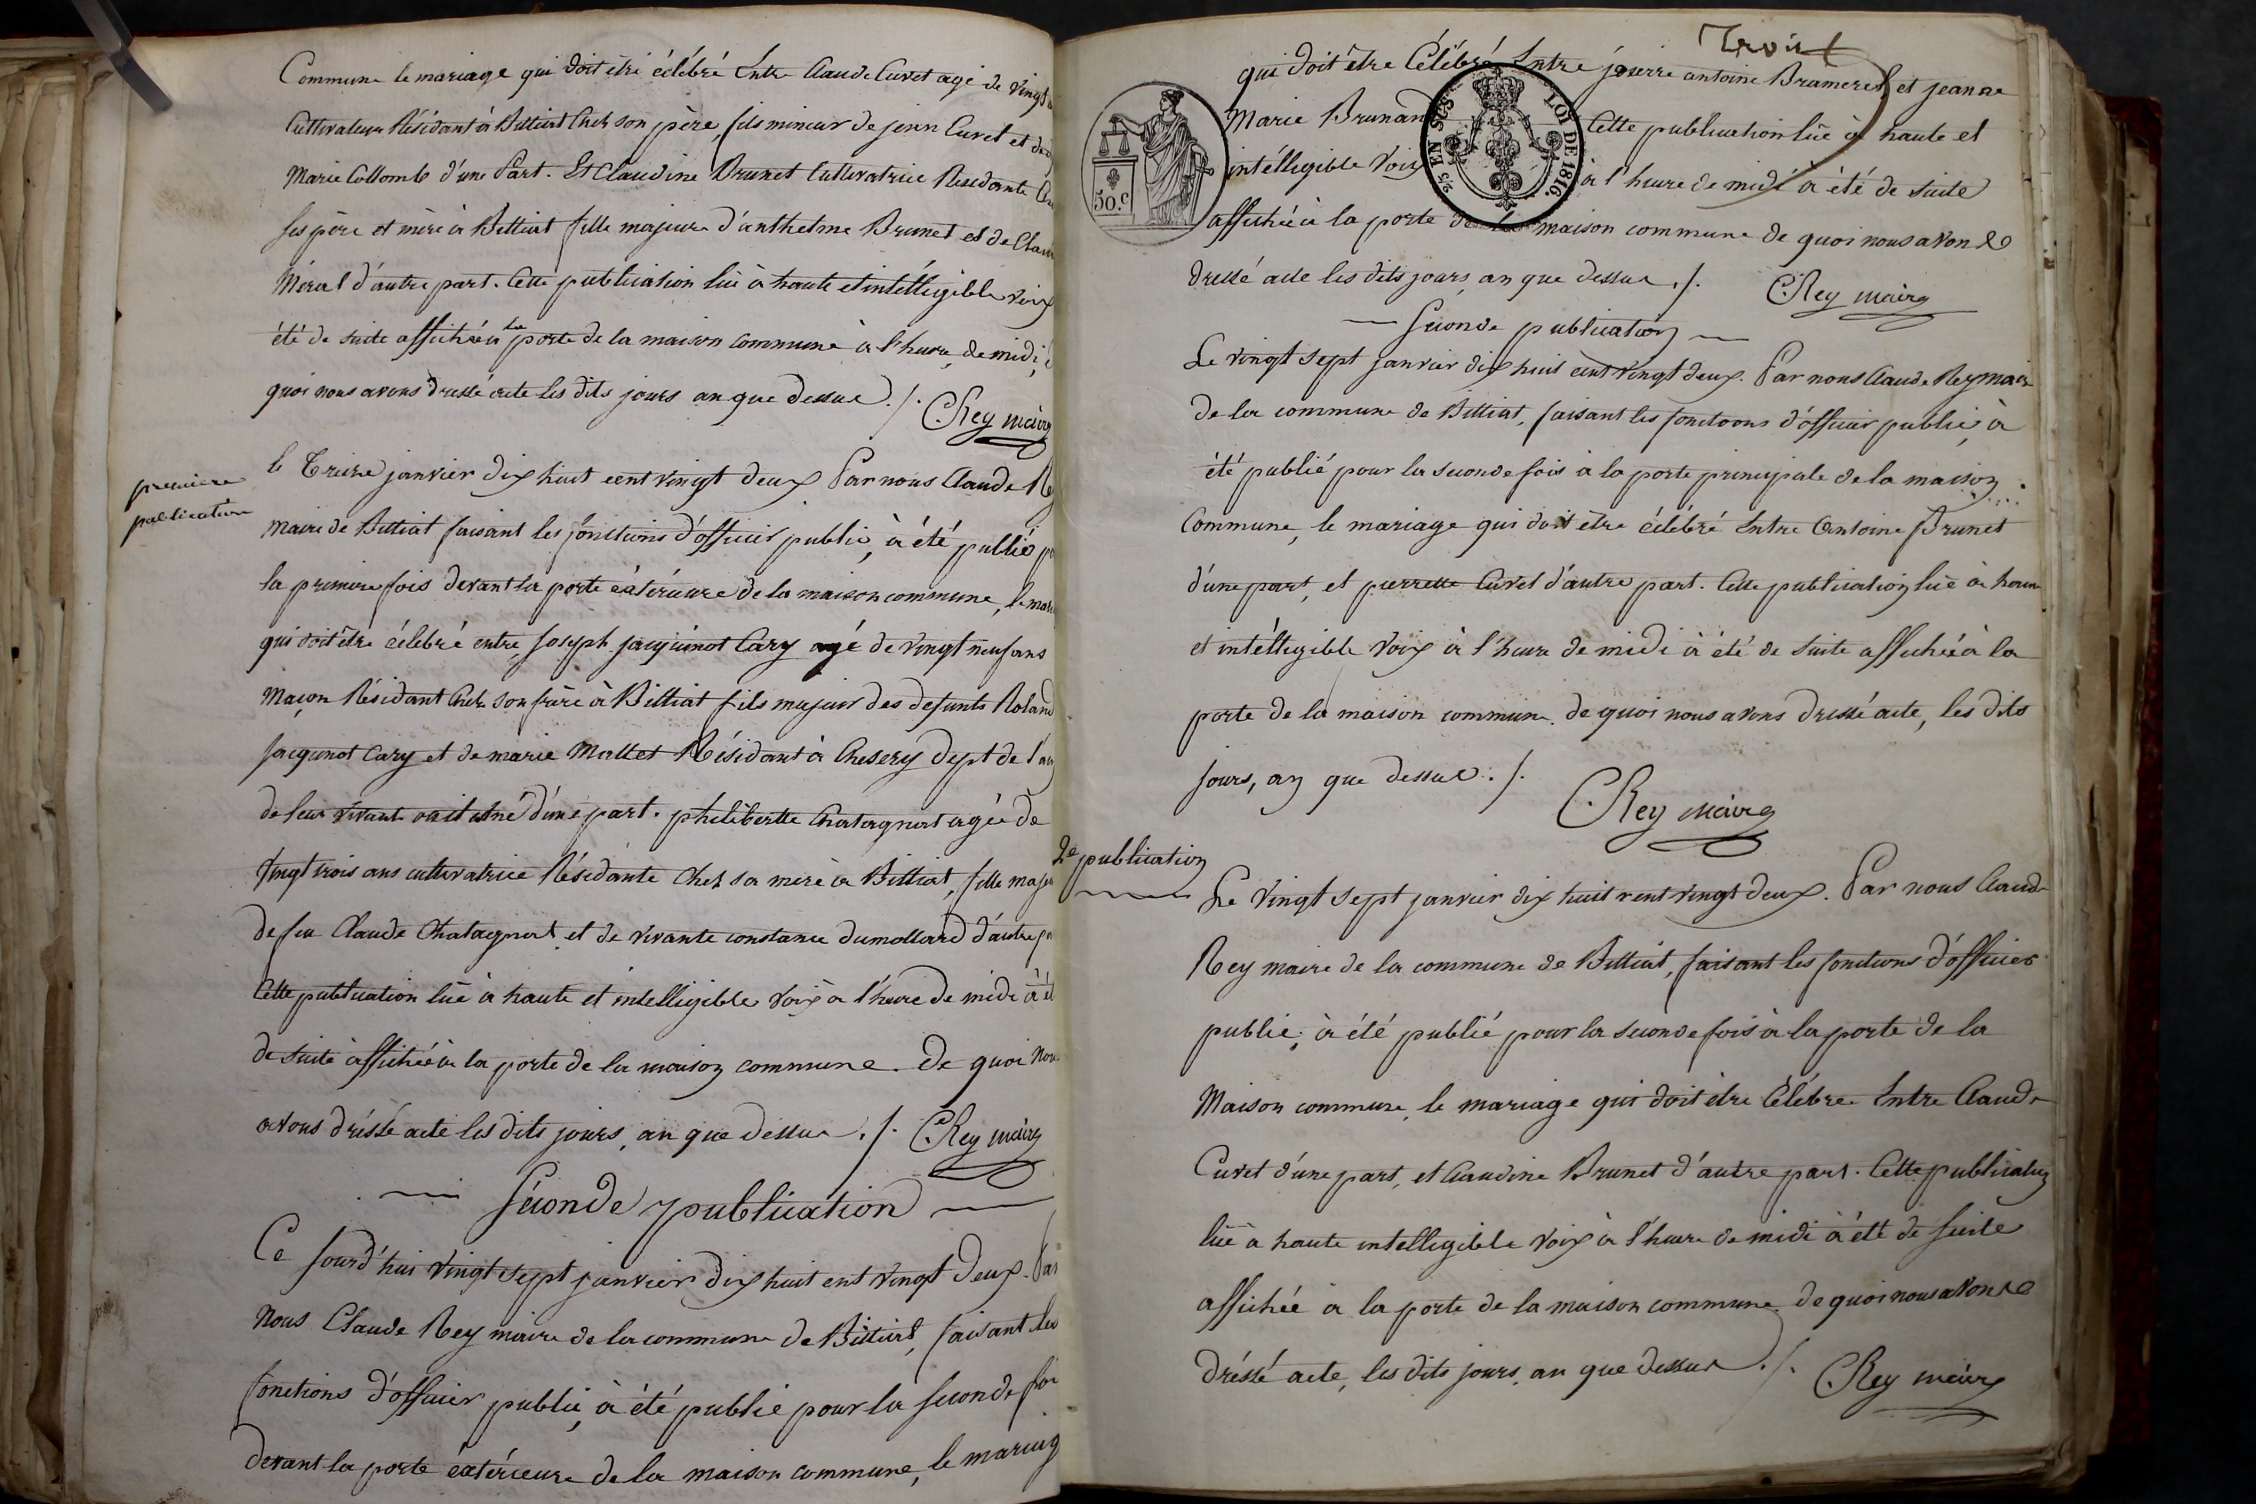 Commune le mariage qui doit être célébré Entre Claude Curet agé de vingt
Cultivateur Résidant à Billiat Chez son père, fils mineur de jean Curet et de
Marie Collomb d'une Part. Et Claudine Brunet Cultivatrice Résidante
ses père et mère à Billiat fille majeure d'anthelme Brunet et de
Méral d'autre part. Cette publication lüe à haute et intélligible voix
été de suite affichée à la porte de la maison commune à l'heure de midi,
quoi nous avons dressé acte les dits jours an que dessus ./. CRey maire
première
publication
le Treize janvier dix huit cent vingt deux Par nous Claude
Maire de Billiat faisant les fonctions d'officier public, à été publié
la première fois devant la porte éxtérieure de la maison commune, le
qui doit être célébré entre Joseph jacquinot Cary agé de vingt neuf ans
Maçon Résidant Chez son frère à Billiat fils majeur des defunts Roland
Jacquinot Cary et de marie Mallet Résidant à Chesery dept de
de leur vivant d'une part. philiberte Chatagnat agée de
Vingt trois ans cultivatrice Résidante Chez sa mère à Billiat, fille
de feu Claude Chatagnat et de vivante constance dumollard d'autre
Cette publication lüe à haute et intelligible voix à l'heure de midi à
de suite affichée à la porte de la maison commune. De quoi
avons dréssé acte les dits jours, an que dessus ./. CRey maire
Séconde publication
Ce Jourd'hui vingt sept janvier dix huit cent vingt deux.
Nous Claude Rey maire de la commune de Billiat, faisant les
fonctions d'officier public, à été publié pour la seconde
devant la porte éxtérieure de la maison commune, le
Trois
qui doit être Célébré Entre pierre antoine Brameret et jeanne
Marie Brunand Cette publication lüe à haute et
intélligible Voix à l'heure de midi à été de suite
affichée à la porte de la maison commune de quoi nous avons
dressé acte les dits jours, an que dessus ./. CRey maire
50.c
25 EN SUS LOI DE 1816.
Séconde publication
Le vingt sept Janvier dix huit cent vingt deux. Par nous Claude Rey maire
de la commune de Billiat, faisant les fonctions d'officier public, à
été publié pour la seconde fois à la porte principale de la maison
Commune, le mariage qui doit être célébré Entre Antoine Brunet
d'une part, et pierrette Curet d'autre part. Cette publication lüe à
et intélligible Voix à l'heure de midi à été de suite affichée à la
porte de la maison commune. de quoi nous avons dressé acte, les dits
jours, an que dessus ./.
CRey maire
2e publication
Le Vingt sept janvier dix huit cent vingt deux. Par nous Claude
Rey maire de la commune de Billiat, faisant les fonctions d'officier
public, à été publié pour la seconde fois à la porte de la
Maison commune, le mariage qui doit être Célébré Entre Claude
Curet d'une part, et Claudine Brunet d'autre part. Cette publication
lüe à haute intelligible Voix à l'heure de midi à été de suite
affichée à la porte de la maison commune. de quoi nous avons
dréssé acte, les dits jours, an que dessus ./. CRey maire